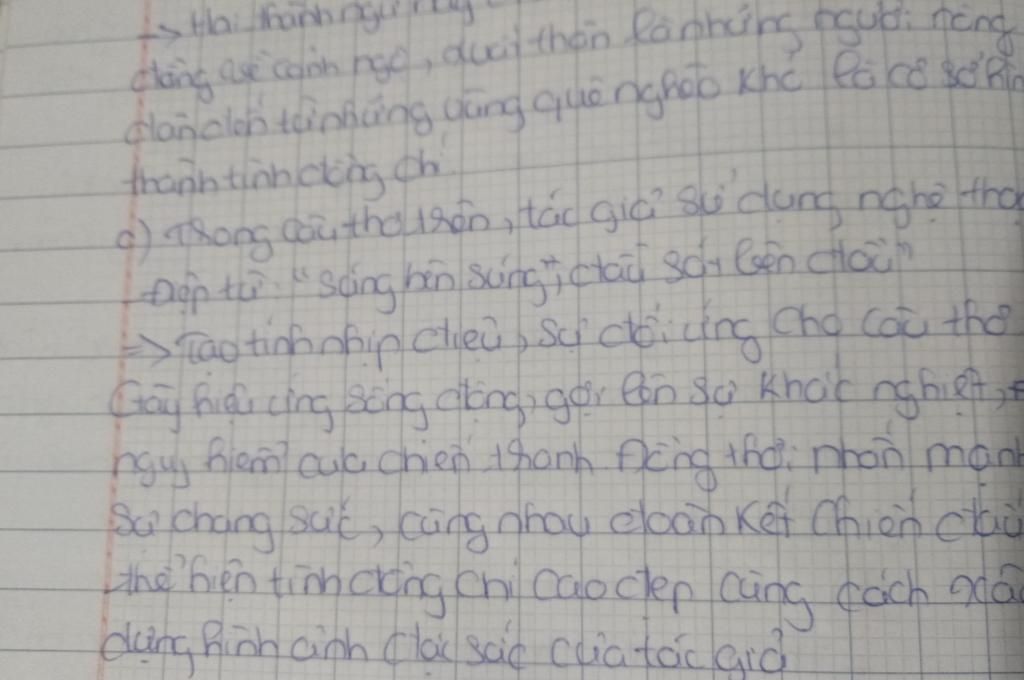 → Hai thành ngữ này
đồng cảnh ngộ, xuất thân là những người nông
dân đến từ những vùng quê nghèo khó là cơ sở hình
thành tình đồng chí
c) Trong câu thơ trên, tác giả sử dụng nghệ thuật
Điệp từ: "súng bên súng", "đầu sát bên đầu"
=> Tạo tính nhịp điệu, sự đối ứng cho câu thơ
Gây hiệu ứng sống động, gợi lên sự khốc nghiệt,
nguy hiểm của chiến tranh đồng thời nhấn mạnh
sự chung sức, cùng nhau đoàn kết chiến đấu
thể hiện tình đồng chí cao đẹp cùng cách xây
dựng hình ảnh đặc sắc của tác giả